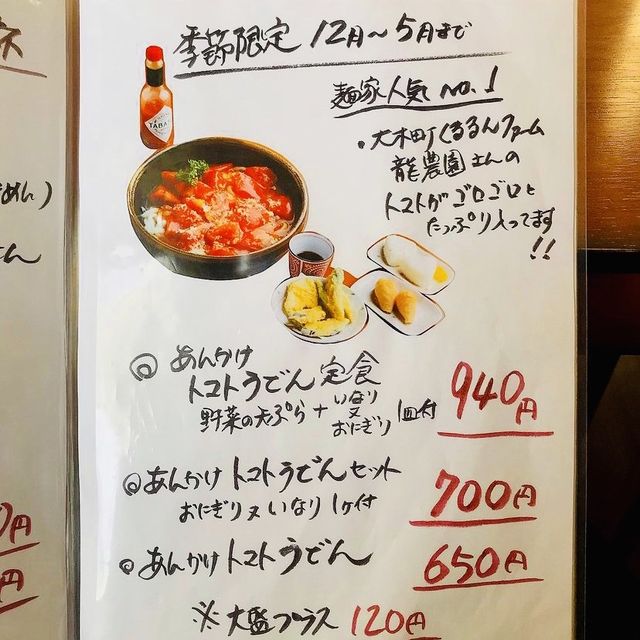 季節限定 12月〜5月まで
麺家人気 no.1
・大木町くるるんファーム
龍農園さんの
トマトがゴロゴロと
たっぷり入ってます
!!
TABA
◎ あんかけ
トマトうどん定食
野菜の天ぷら + いなり 又 おにぎり 1皿付 940円
◎あんかけトマトうどんセット
おにぎり又いなり 1ヶ付 700円
◎あんかけトマトうどん 650円
※大盛プラス 120円
めん)
円
円